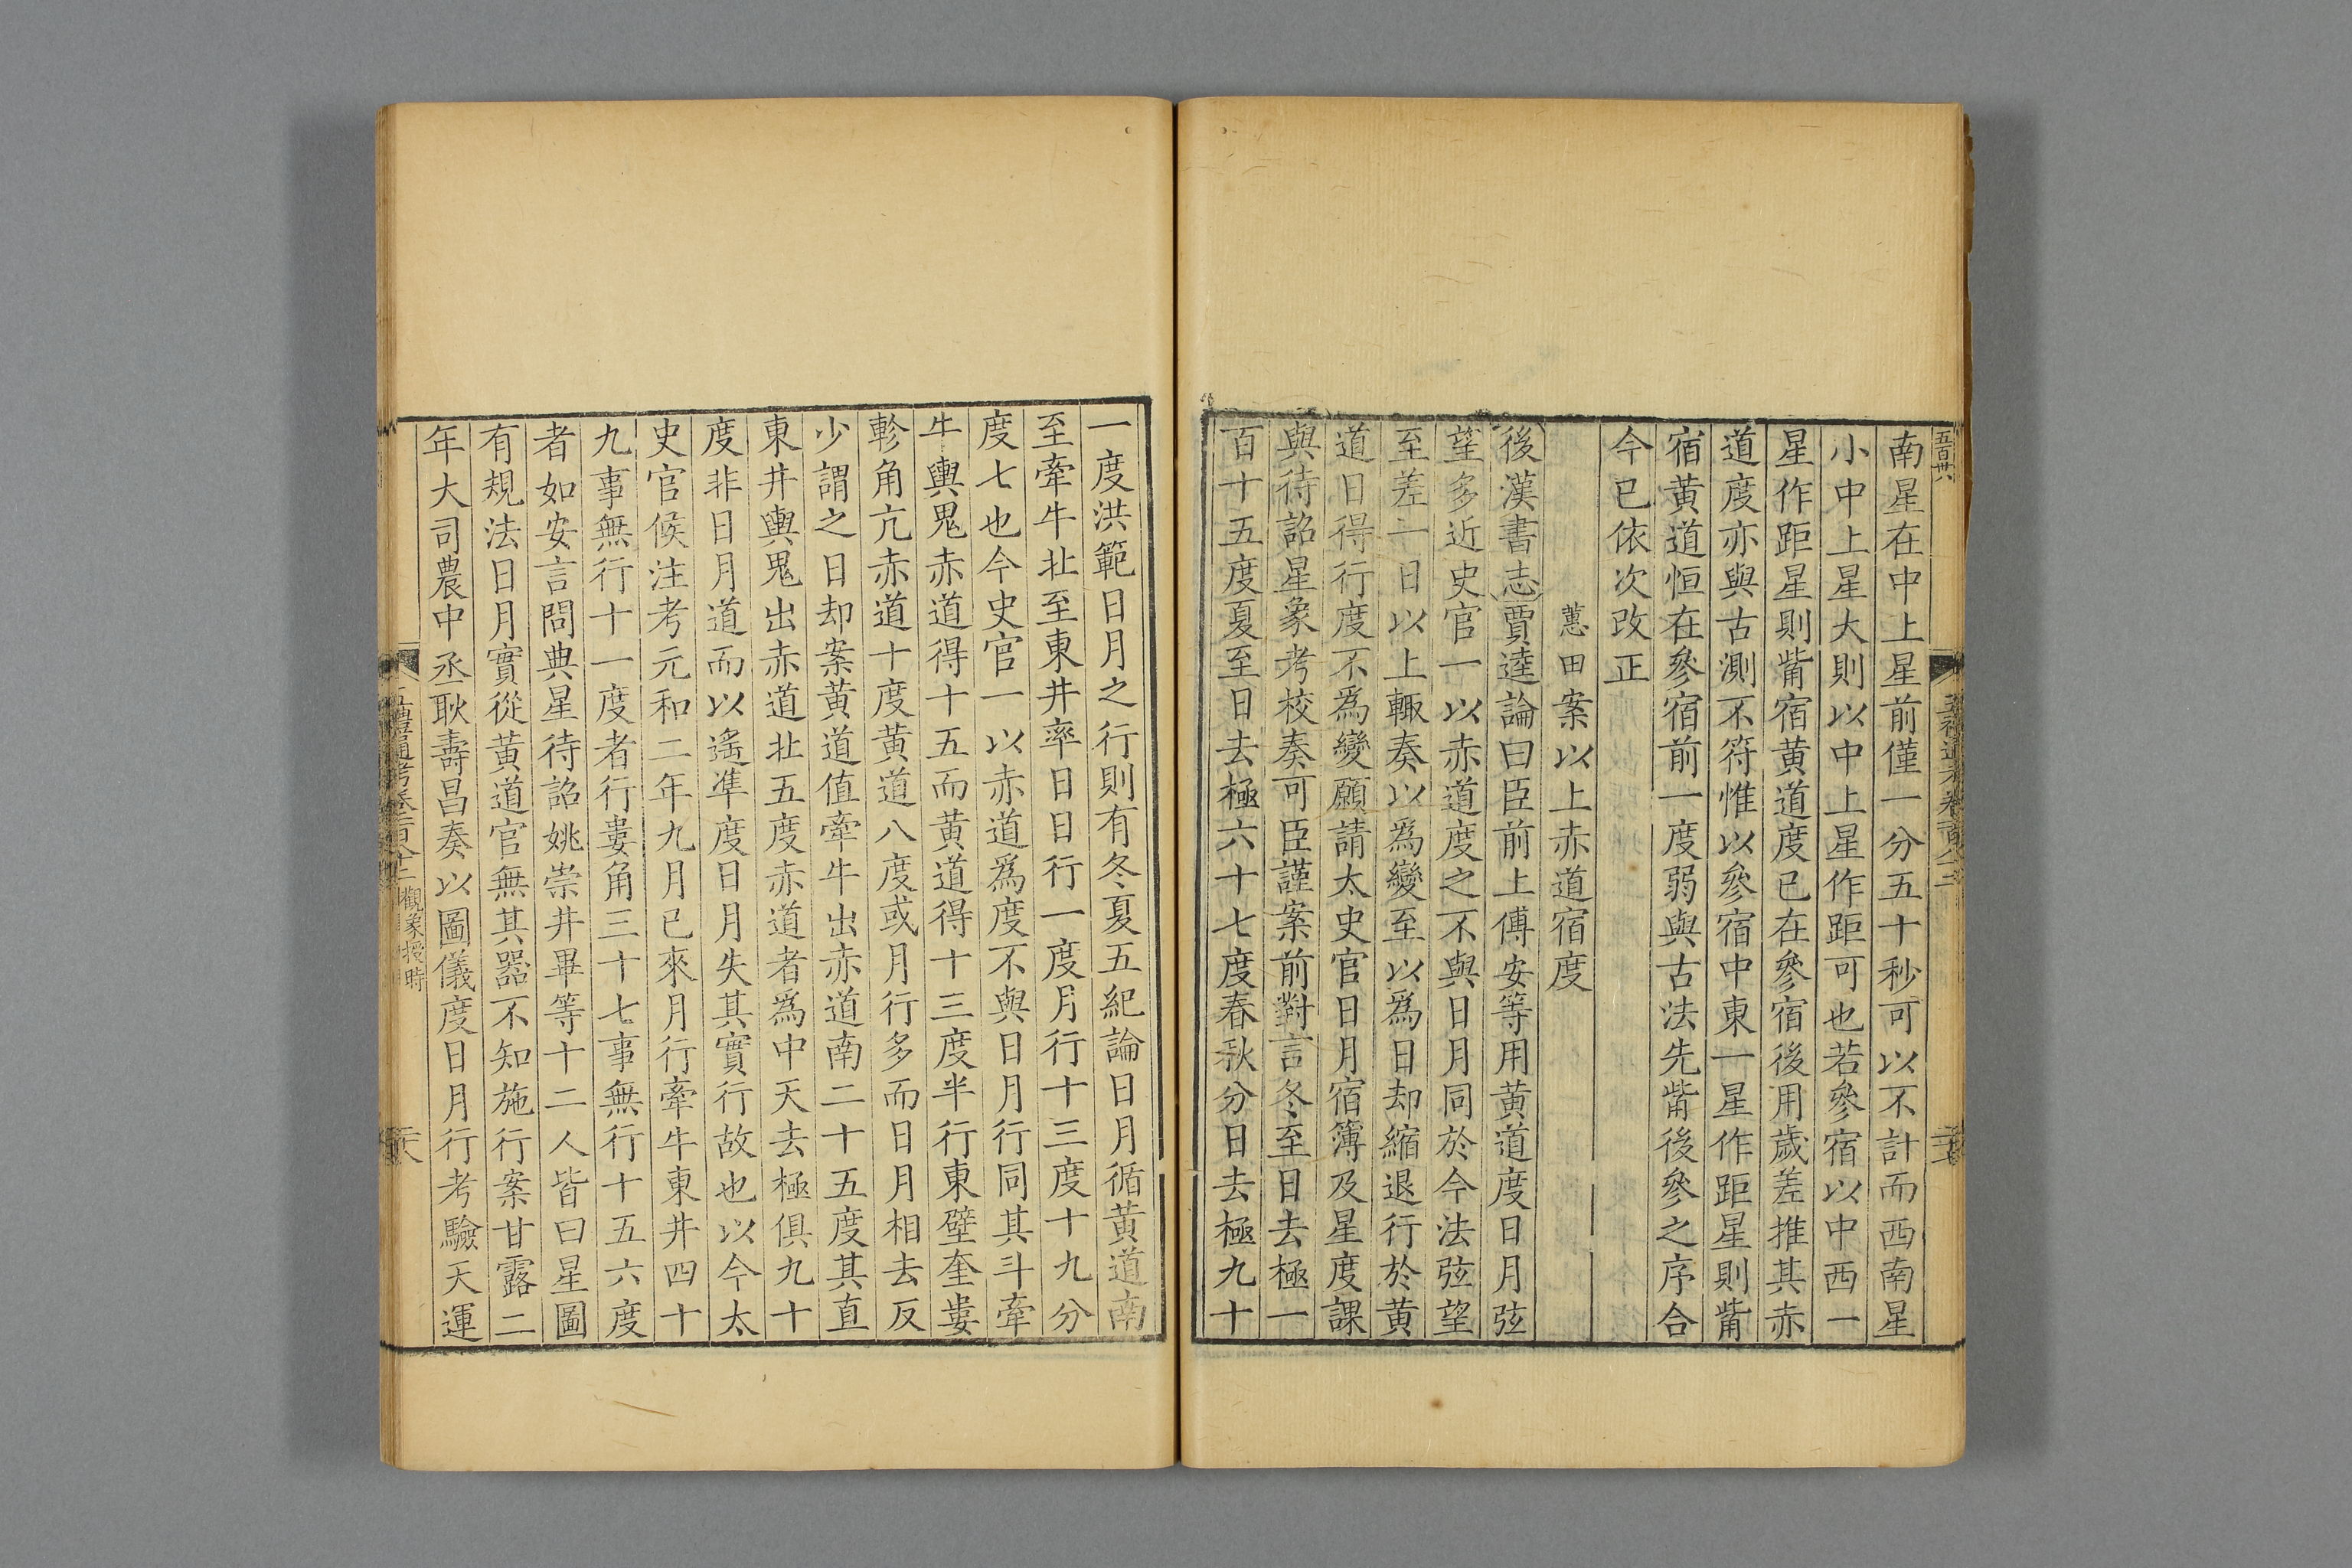 五百卅六
南星在中上星前僅一分五十秒可以不計而西南星
小中上星大則以中上星作距可也若參宿以中西一
星作距星則觜宿黃道度已在參宿後用歲差推其赤
道度亦與古測不符惟以參宿中東一星作距星則觜
宿黃道恒在參宿前一度弱與古法先觜後參之序合
今已依次改正
蕙田案以上赤道宿度
後漢書志賈逵論曰臣前上傅安等用黃道度日月弦
望多近史官一以赤道度之不與日月同於今法弦望
至差一日以上輒奏以爲變至以爲日却縮退行於黃
道日得行度不爲變願請太史官日月宿簿及星度課
與待詔星象考校奏可臣謹案前對言冬至日去極一
百十五度夏至日去極六十七度春秋分日去極九十
一度洪範日月之行則有冬夏五紀論日月循黃道南
至牽牛北至東井率日日行一度月行十三度十九分
度七也今史官一以赤道爲度不與日月行同其斗牽
牛輿鬼赤道得十五而黃道得十三度半行東壁奎婁
軫角亢赤道十度黃道八度或月行多而日月相去反
少謂之日却案黃道值牽牛出赤道南二十五度其直
東井輿鬼出赤道北五度赤道者爲中天去極俱九十
度非日月道而以遙準度日月失其實行故也以今太
史官候注考元和二年九月已來月行牽牛東井四十
九事無行十一度者行婁角三十七事無行十五六度
者如安言問典星待詔姚崇井畢等十二人皆曰星圖
有規法日月實從黃道官無其器不知施行案甘露二
年大司農中丞耿壽昌奏以圖儀度日月行考驗天運
五禮通考卷一百八十二 觀象授時